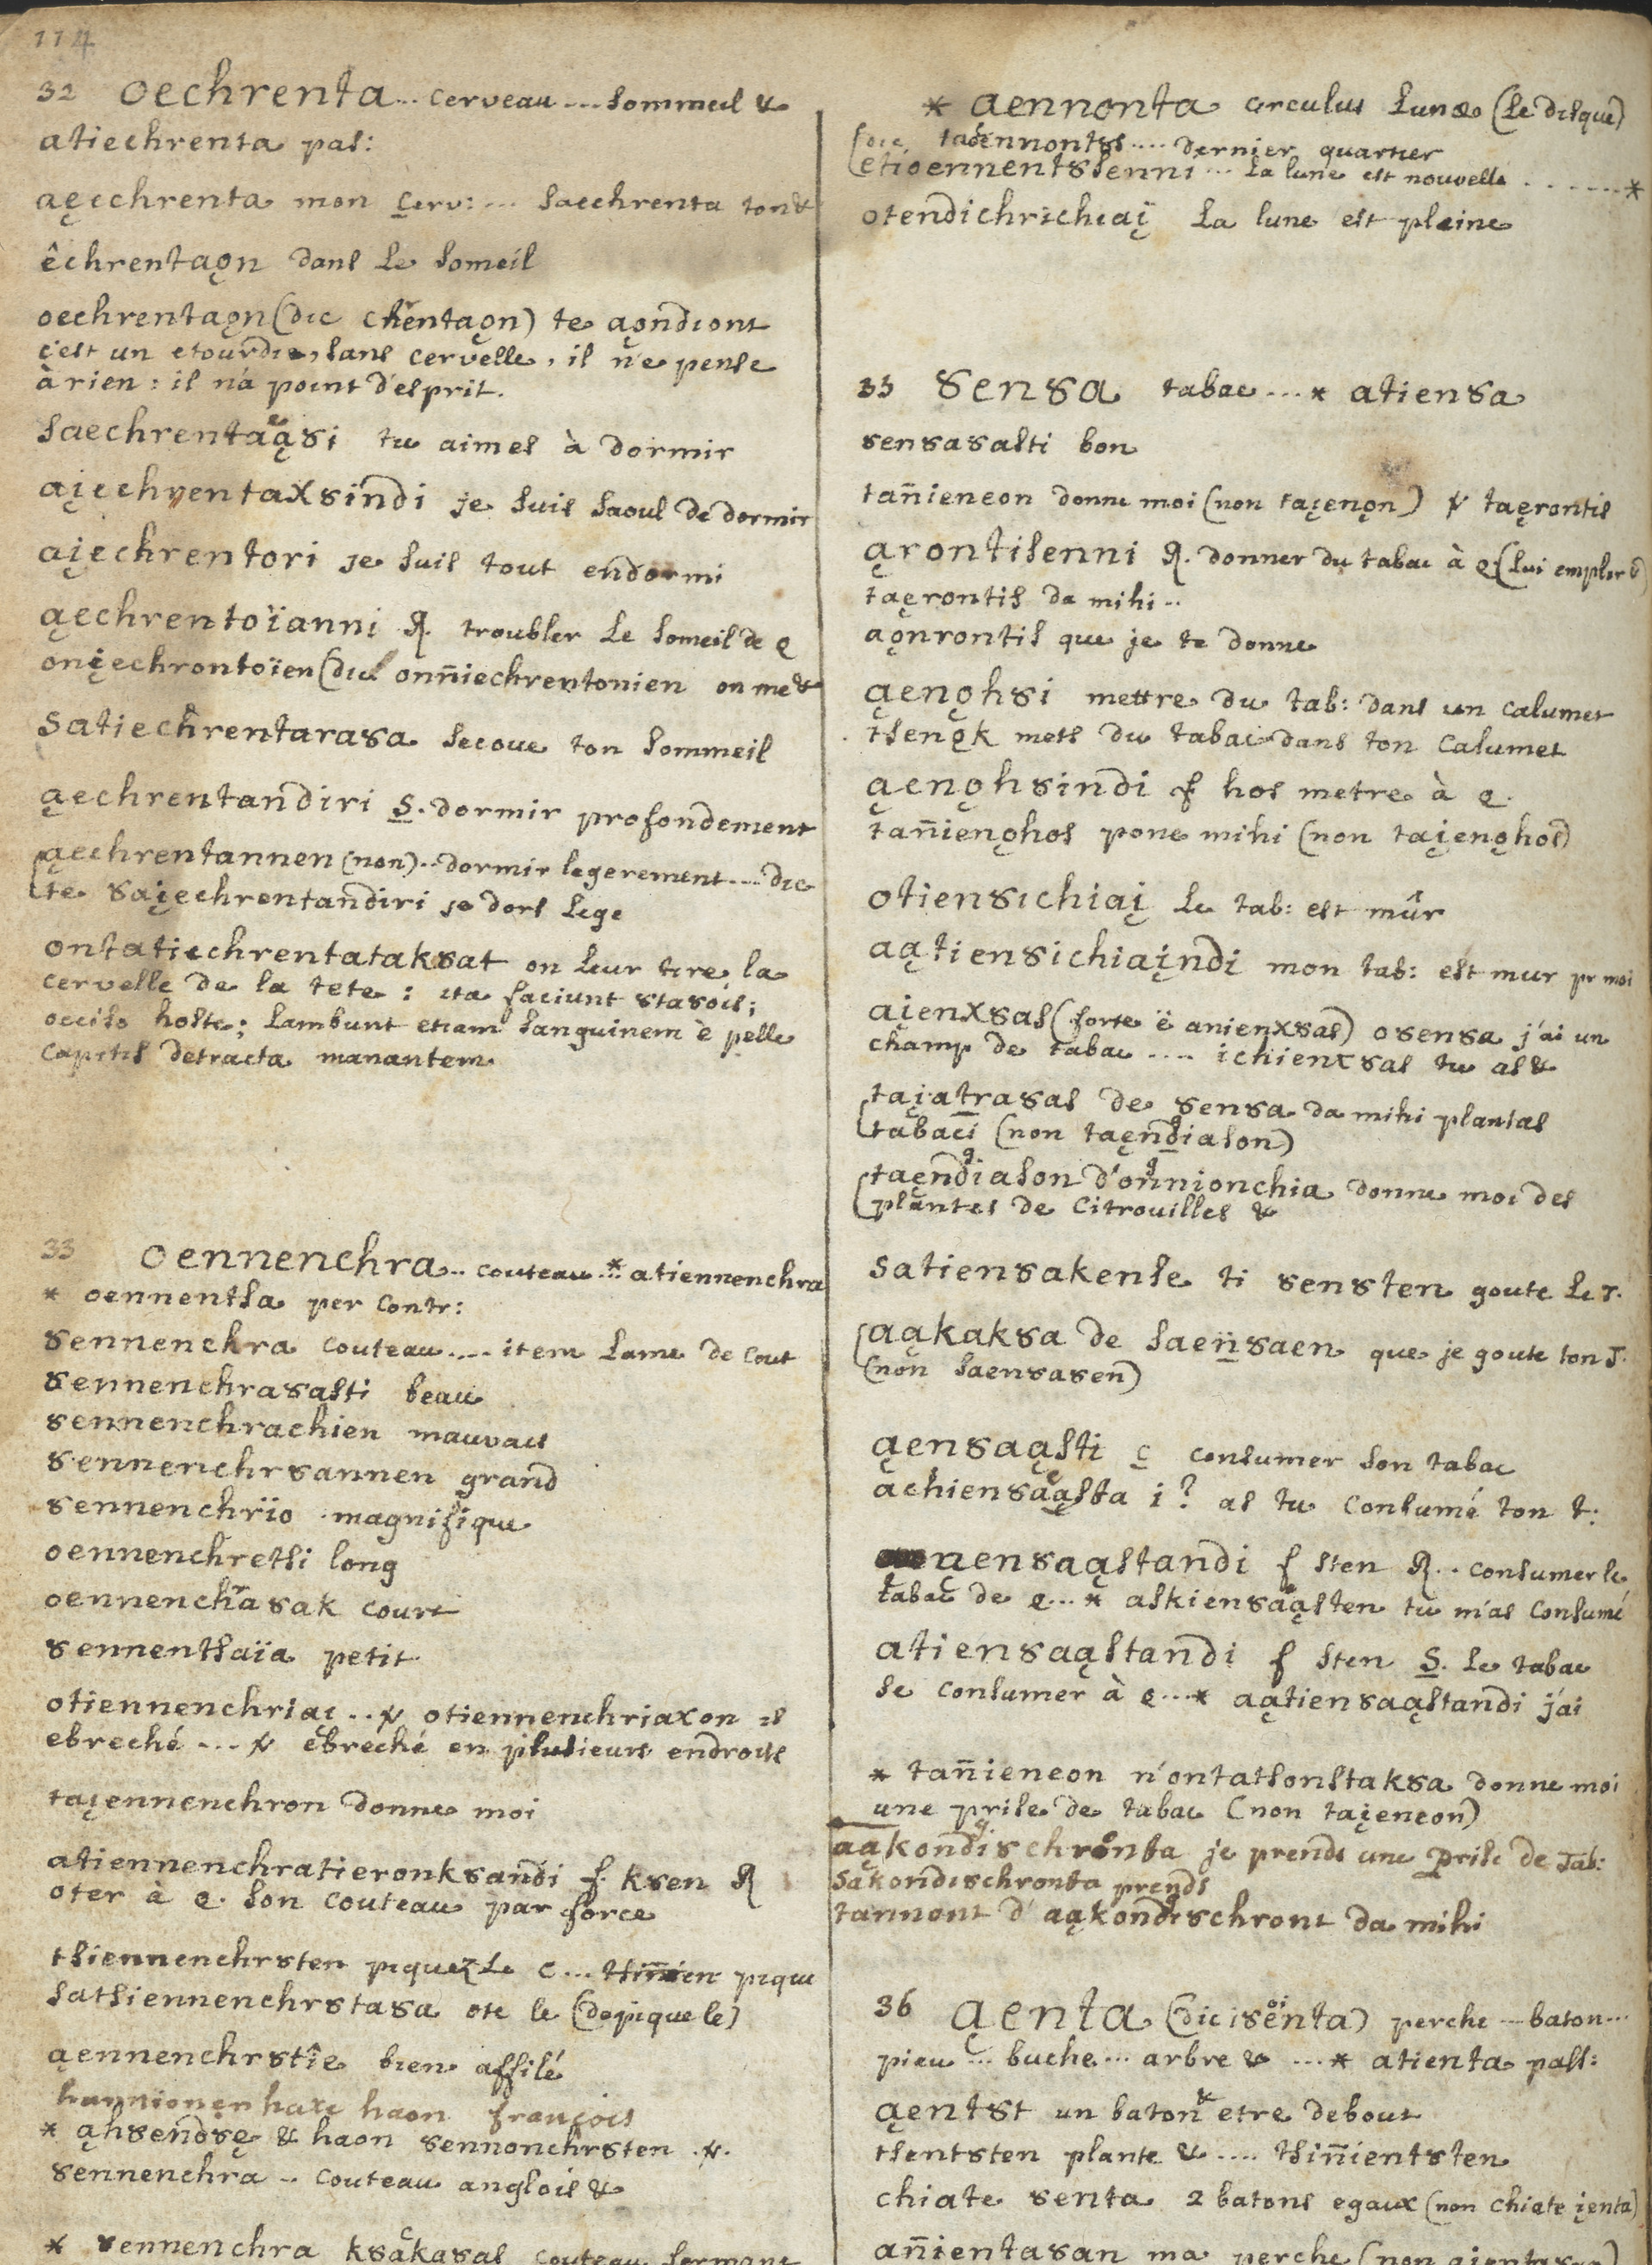 114
32 oechrenta... cerveau .... sommeil &
atiechrenta pas:
aęechrenta mon cerv: ... saechrenta ton &
êchrentaǫn dans le someil
oechrentaǫn (dic chrentaǫn) te ąǫndiont
c'est un etourdi, sans cervelle, il ne pense
à rien: il n'a point d'esprit.
saechrentaąȣi tu aimes à dormir
aįechrentaxȣindi je suis saoul de dormir
aįechrentori je suis tout endormi
ąechrentoïanni R. troubler le someil de q
onįechrontoïen (dic onñiechrentonien on me &
satiechrentaraȣa secoue ton sommeil
ąechrentandiri S. dormir profondement
ąechrentannen (non)... dormir legerement .... dic
te ȣaįechrentandiri je dors lege
ontatiechrentatakȣat on leur tire la
cervelle de la tete: ita faciunt
occiso hoste; lambunt etiam sanguinem è pelle
capitis detracta manantem
33 oennenchra.. couteau ...* atiennenchra
* oennentsa per contr:
ȣennenchra couteau .... item lame de cout
ȣennenchraȣasti beau
ȣennenchrachien mauvais
ȣennenchrȣannen grand
ȣennenchrïo magnifique
oennenchretsi long
oennenchraȣak court
ȣennentsaïa petit
otiennenchriai .. & otiennenchriaxon il
ebreché ... & ebreché en plusieurs endroits
taįennenchron donne moi
atiennenchratieronkȣandi f. kȣen R
oter à q. son couteau par force
tsiennenchrȣten piquez le c... pique
satsiennenchrȣtaȣa ote le (depique le)
ąennenchrȣtîe bien affilé
haxe haon françois
* ąhȣendȣę & haon ȣennonchrȣten .&.
ȣennenchra .. couteau anglois &
* ȣennenchra kȣakaȣas couteau fermant
* aennonta circulus lunæ (le disque)
dernier quartier
etioennentȣsenni ... la lune est nouvelle .......*
otendichrichiaį la lune est pleine
35 ȣenȣa tabac ...* atienȣa
ȣenȣaȣasti bon
tañieneon donne moi (non taįenǫn) & taęrontis
ąrontisenni R. donner du tabac à q (lui emplir &)
taęrontis da mihi ..
aǫnrontis que je te donne
ąenǫhȣi mettre du tab: dans un calumet
tsenǫk mets du tabac dans ton calumet
ąenǫhȣindi f hos metre à q.
tañienǫhos pone mihi (non taįenǫhos)
otienȣichiaį le tab: est mûr
aątienȣichiaįndi mon tab: est mur pr moi
aįenxȣas (forte ë anienxȣas) oȣenȣa j'ai un
champ de tabac .... ichienxȣas tu as &
taįatraȣas de ȣenȣa da mihi plantas
tabaci (non taęndiason)
taęndiason d'onnionchia donne moi des
plantes de citrouilles &
satienȣakense ti ȣenȣten goute le T.
aąkakȣa de saenȣaen que je goute ton T.
(non saenȣaȣen)
ąenȣaąsti c consumer son tabac
achienȣaąsta i? as tu consumé ton t:
ąenȣaąstandi f sten R.. consumer le
tabac de q...* askienȣaąsten tu m'as consumé
atienȣaąstandi f sten S. le tabac
se consumer à q...* aątienȣaąstandi j'ai
* tañieneon n'ontatsonstakȣa donne moi
une prise de tabac (non taįeneon)
aąkondischronta je prends une prise de Tab:
sakondischronta prends
tannont d'aąkondischront da mihi
36 ąenta (dic iȣenta) perche ... baton...
pieu ... buche ... arbre & ...* atienta pass:
ąentȣt un baton & etre debout
tsentȣten plante & .... tsiñientȣten
chiate ȣenta 2 batons egaux (non chiate įenta)
añientaȣan ma perche (non